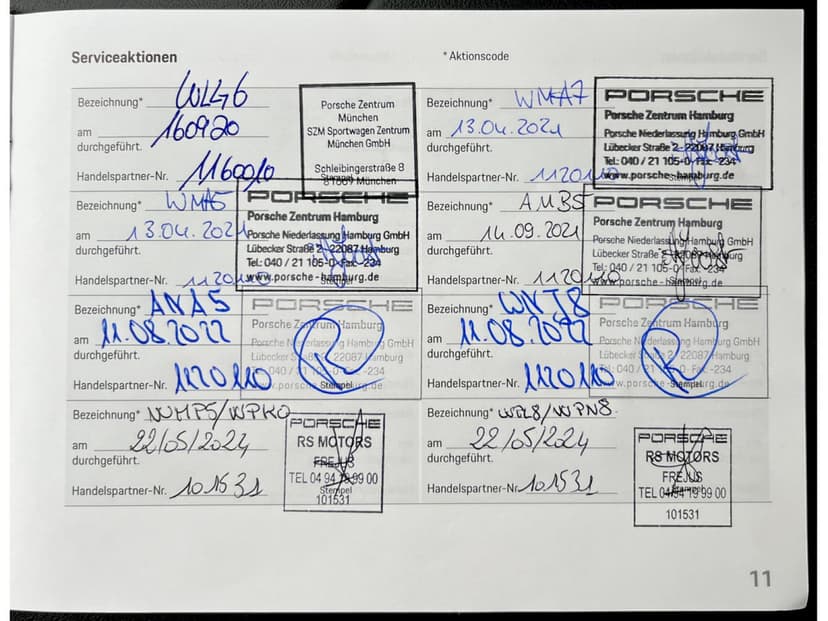 Serviceaktionen
* Aktionscode
Bezeichnung* WLG6
am 160920
durchgeführt.
Handelspartner-Nr. 1160010
Porsche Zentrum
München
SZM Sportwagen Zentrum
München GmbH
Schleibingerstraße 8
81669 München
Stempel
Bezeichnung* WMA7
am 13.04.2021
durchgeführt.
Handelspartner-Nr. 1120110
PORSCHE
Porsche Zentrum Hamburg
Porsche Niederlassung Hamburg GmbH
Lübecker Straße 2 - 22087 Hamburg
Tel: 040 / 21 105-0 Fax -234
www.porsche-hamburg.de
Stempel
Bezeichnung* WMA5
am 13.04.2021
durchgeführt.
Handelspartner-Nr. 1120110
PORSCHE
Porsche Zentrum Hamburg
Porsche Niederlassung Hamburg GmbH
Lübecker Straße 2 - 22087 Hamburg
Tel.: 040 / 21 105-0 Fax -234
www.porsche-hamburg.de
Stempel
Bezeichnung* AMB5
am 14.09.2021
durchgeführt.
Handelspartner-Nr. 1120110
PORSCHE
Porsche Zentrum Hamburg
Porsche Niederlassung Hamburg GmbH
Lübecker Straße 2 - 22087 Hamburg
Tel: 040 / 21 105-0 Fax -234
www.porsche-hamburg.de
Stempel
Bezeichnung* ANA5
am 11.08.2022
durchgeführt.
Handelspartner-Nr. 1120110
PORSCHE
Porsche Zentrum Hamburg
Porsche Niederlassung Hamburg GmbH
Lübecker Straße 2 - 22087 Hamburg
Tel: 040 / 21 105-0 Fax -234
www.porsche-hamburg.de
Stempel
Bezeichnung* WNJ8
am 11.08.2022
durchgeführt.
Handelspartner-Nr. 1120110
PORSCHE
Porsche Zentrum Hamburg
Porsche Niederlassung Hamburg GmbH
Lübecker Straße 2 - 22087 Hamburg
Tel: 040 / 21 105-0 Fax -234
www.porsche-hamburg.de
Stempel
Bezeichnung* NUMP5/WPK0
am 22/05/2024
durchgeführt.
Handelspartner-Nr. 101531
PORSCHE
RS MOTORS
FREJUS
TEL 04 94 19 99 00
Stempel
101531
Bezeichnung* WPL8/WPN8
am 22/05/2024
durchgeführt.
Handelspartner-Nr. 101531
PORSCHE
RS MOTORS
FREJUS
TEL 04 94 19 99 00
Stempel
101531
11